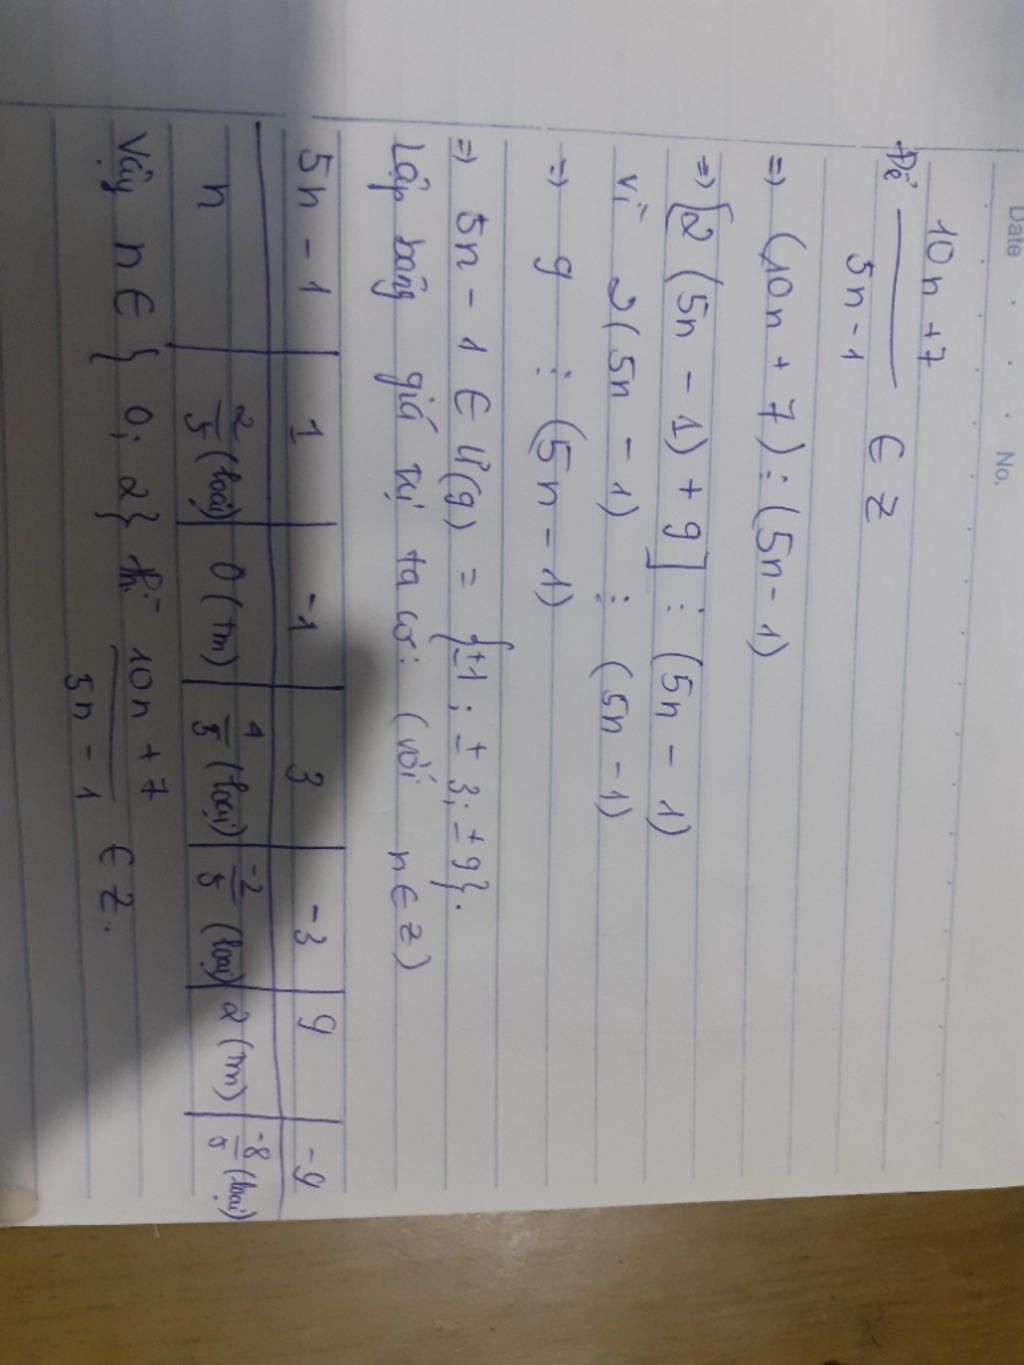 Date No.
Để \frac{10n+7}{5n-1} ∈ Z
⇒ (10n + 7) ⋮ (5n - 1)
⇒ [2 (5n - 1) + 9] ⋮ (5n - 1)
Vì 2(5n - 1) ⋮ (5n - 1)
⇒ 9 ⋮ (5n - 1)
⇒ 5n - 1 ∈ Ư(9) = {±1; ±3; ±9}.
Lập bảng giá trị ta có: (với n ∈ Z)
5n - 1 | 1 | -1 | 3 | -3 | 9 | -9
n | \frac{2}{5} (loại) | 0 (tm) | \frac{4}{5} (loại) | \frac{-2}{5} (loại) | 2 (tm) | \frac{-8}{5} (loại)
Vậy n ∈ } 0; 2} thì \frac{10n+7}{5n-1} ∈ Z.